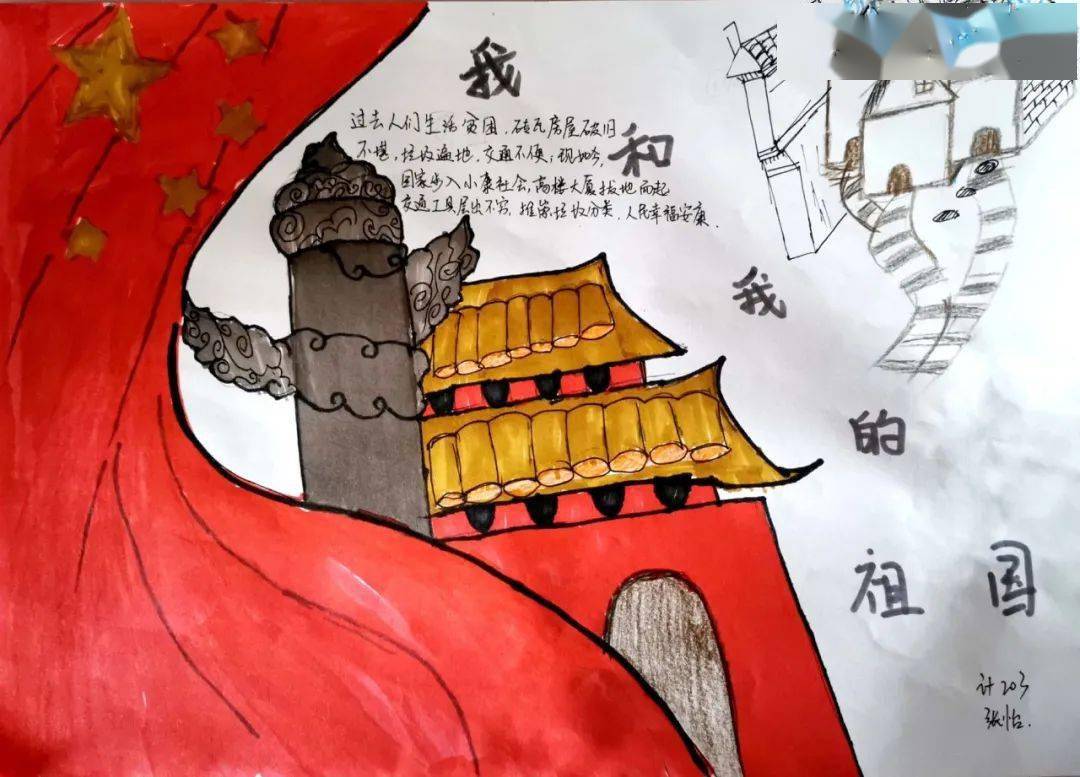 我和我的祖国
过去人们生活贫困，砖瓦房屋破旧
不堪，垃圾遍地，交通不便；现如今，
国家步入小康社会，高楼大厦拔地而起
交通工具层出不穷，推崇垃圾分类，人民幸福安康．
计203
张怡．